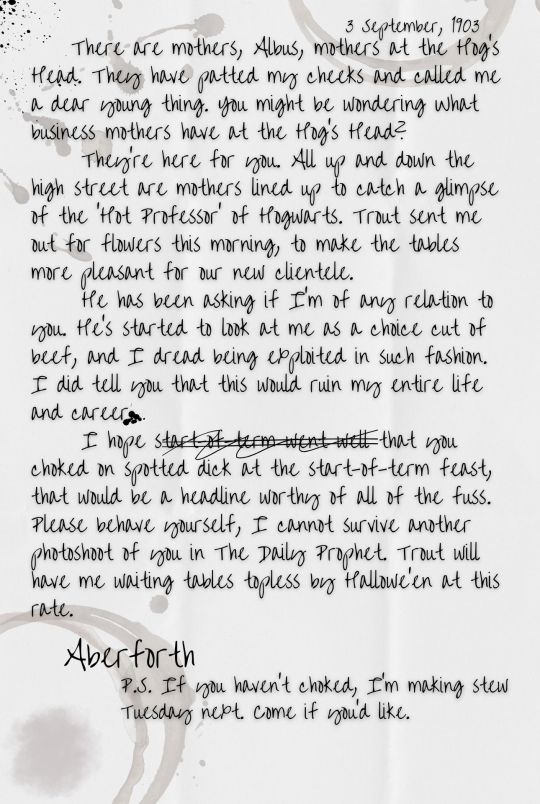 3 September, 1903
There are mothers, Albus, mothers at the Hog's
Head. They have patted my cheeks and called me
a dear young thing. You might be wondering what
business mothers have at the Hog's Head?
They're here for you. All up and down the
high street are mothers lined up to catch a glimpse
of the 'Hot Professor' of Hogwarts. Trout sent me
out for flowers this morning, to make the tables
more pleasant for our new clientele.
He has been asking if I'm of any relation to
you. He's started to look at me as a choice cut of
beef, and I dread being exploited in such fashion.
I did tell you that this would ruin my entire life
and career.
I hope start-of-term went well that you
choked on spotted dick at the start-of-term feast,
that would be a headline worthy of all of the fuss.
Please behave yourself, I cannot survive another
photoshoot of you in The Daily Prophet. Trout will
have me waiting tables topless by Hallowe'en at this
rate.
Aberforth
P.S. If you haven't choked, I'm making stew
Tuesday next. Come if you'd like.